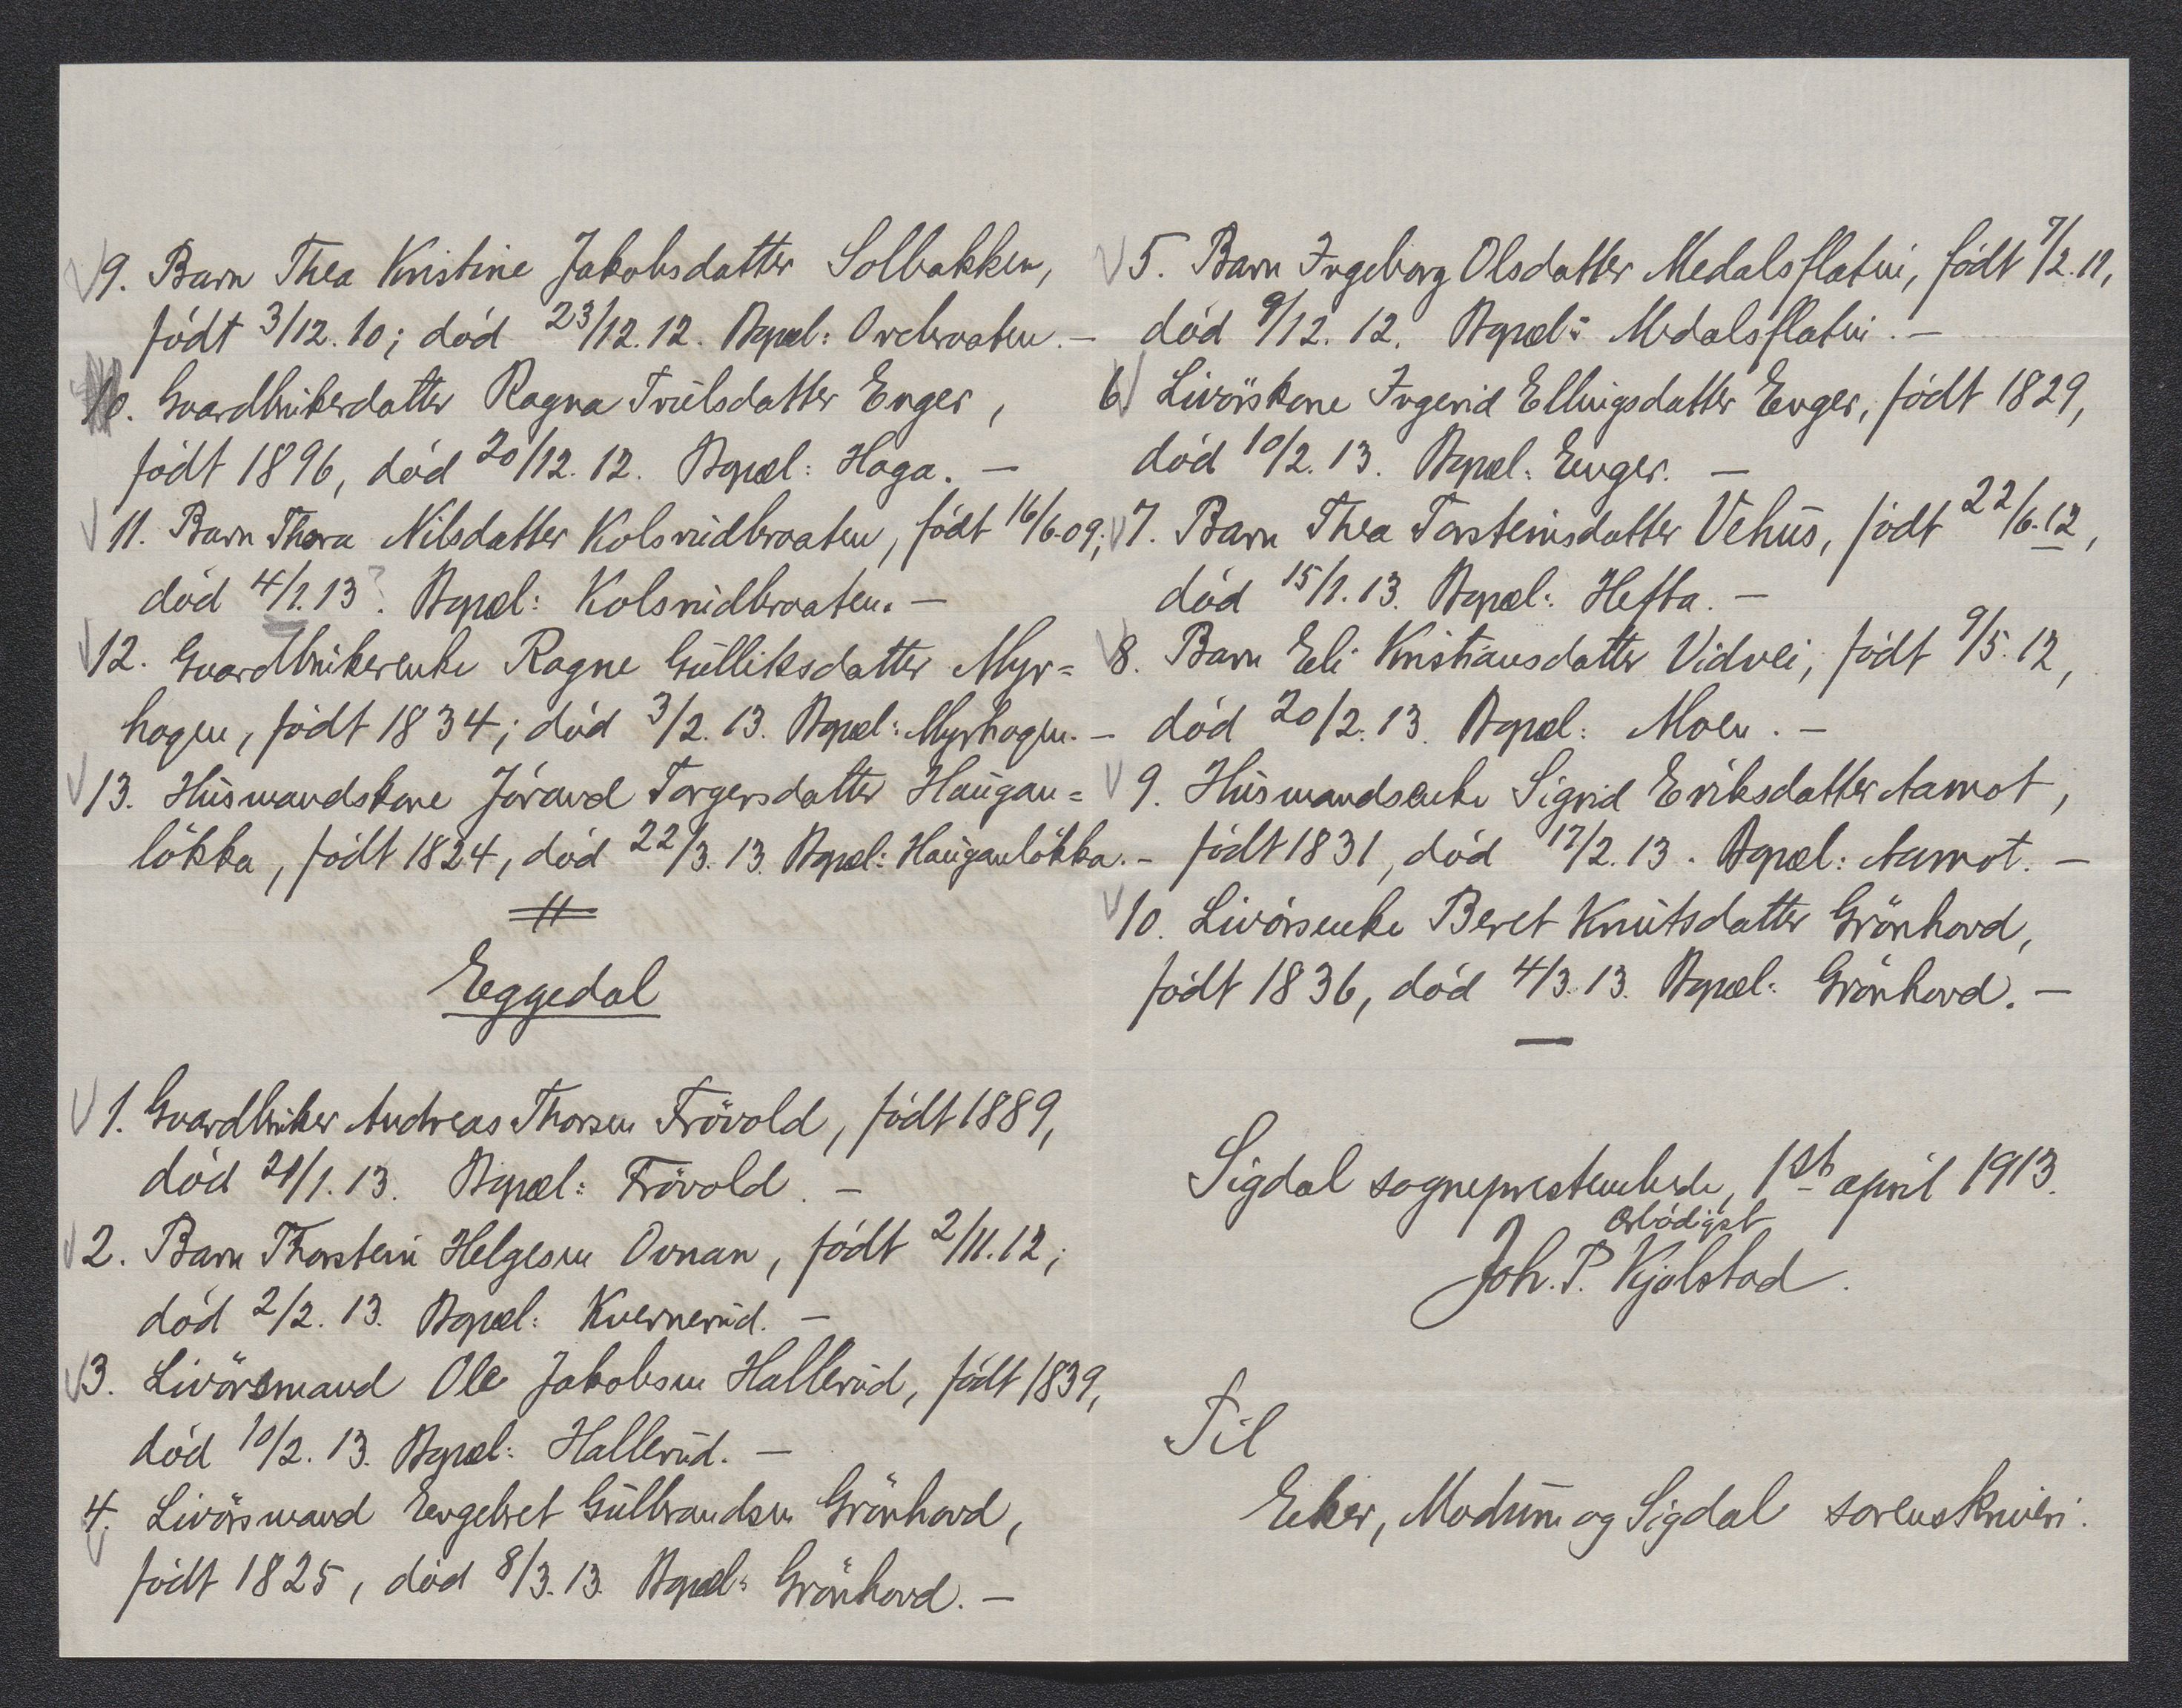 9. Barn Thea Kristine Jakobsdatter Solbakken,
född 3/12.10; död 23/12.12. Bopæl: Orebraaten. –
10. Gaardbrukerdatter Ragna Truls­datter Enger,
född 1896, död 20/12.12. Bopæl: Haga. –
11. Barn Thora Nilsdatter Kolsrudbraaten, född 16/6.09;
död 4/1.13?. Bopæl: Kolsrudbraaten. –
12. Gaardbrukerenke Ragne Gulliksdatter Myr=
hagen, född 1834; död 3/2.13. Bopæl: Myrhagen. –
13. Husmandskone Jörand Torgersdatter Haugan=
lökka, född 1824, död 22/3.13. Bopæl: Hauganlökka. –
Eggedal
1. Gaardbruker Andreas Thorsen Frövold, född 1889,
död 21/1.13. Bopæl: Frövold. –
2. Barn Thorstein Helgesen Ovnan, född 2/11.12;
död 2/2.13. Bopæl: Kvernerud. –
3. Livörsmand Ole Jakobsen Hallerud, född 1839,
död 10/2.13. Bopæl: Hallerud. –
4. Livörsmand Engebret Gulbrandsen Grönhovd,
född 1825, död 8/3.13. Bopæl: Grönhovd. –
5. Barn Ingeborg Olsdatter Medalsflatin, född 7/2.11,
död 9/12.12. Bopæl: Medalsflatin. –
6 Livörskone Ingerid Ellingsdatter Enger, född 1829,
död 10/2.13. Bopæl: Enger. –
7. Barn Thea Torsteinsdatter Vehus, född 22/6.12,
död 15/1.13. Bopæl: Hefta. –
8. Barn Eli Kristiansdatter Vidvei, född 9/5.12,
död 20/2.13. Bopæl: Moen. –
9. Husmandsenke Sigrid Eriksdatter Aamot,
född 1831, död 17/2.13. Bopæl: Aamot. –
10. Livörsenke Beret Knutsdatter Grönhovd,
född 1836, död 4/3.13. Bopæl: Grönhovd. –
Sigdal sogneprestembede, 1st april 1913.
ærbödigst
Joh. P. Kjølstad.
Til
Eker, Modum og Sigdal sorenskriveri.